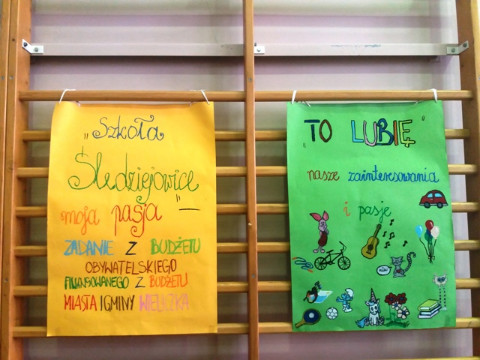 "Szkoła
Śledziejowice
moja pasja"
ZADANIE Z BUDŻETU
OBYWATELSKIEGO
FINANSOWANEGO Z BUDŻETU
MIASTA I GMINY WIELICZKA
"TO LUBIĘ"
nasze zainteresowania
i pasje